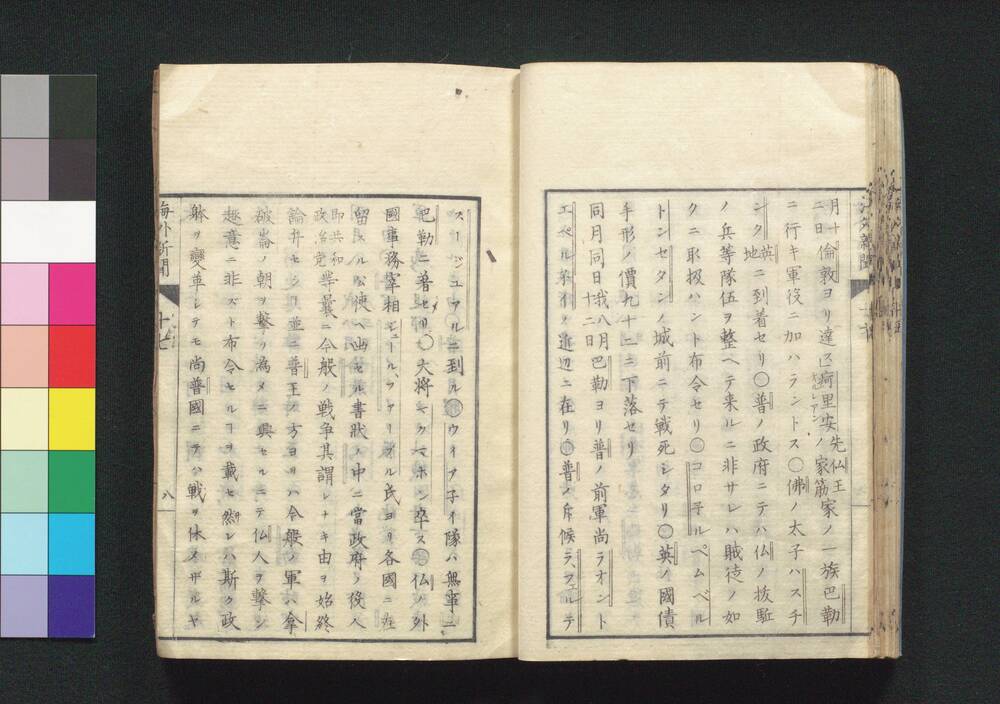 月十二日倫敦ヨリ達ス疴里安先仏王ノ家筋家ノ一族巴勒
オルレアン
ニ行キ軍役ニ加ハラントス〇佛ノ太子ハスチ
ンク英地ニ到着セリ〇普ノ政府ニテハ仏ノ抜駈
ノ兵等隊伍ヲ整ヘテ来ルニ非サレハ賊徒ノ如
クニ取扱ハント布令セリ〇コロ子ルペムベル
トンセタンノ城前ニテ戦死シタリ〇英ノ國債
手形ノ價九十二ニ下落セリ
同月同日我八月十二日巴勒ヨリ普ノ前軍尚ラオント
エペル子イノ近辺ニ在リ〇普ノ斥候ラ、フルテ
スージュワルニ到ル〇ウイノ子イ隊ハ無事ニ
巴勒ニ著セリ〇大将マクマホン卒ス〇仏ノ外
國事務宰相ジュールファーブル氏ヨリ各國ニ在
留スル公使ヘ出セル書状ノ中ニ當政府ノ役人
即共和政治党等曩ニ今般ノ戦争其謂レナキ由ヲ始終
論弁セシヿ並ニ普王ノ方ヨリハ今般ノ軍ハ拿
破崙ノ朝ヲ撃ツ為メニ興セルニテ仏人ヲ撃ン
趣意ニ非ズト布令セルヿヲ載セ然レハ斯ク政
躰ヲ變革シテモ尚普國ニテハ戦ヲ休メザルヤ
海外新聞
十七
八